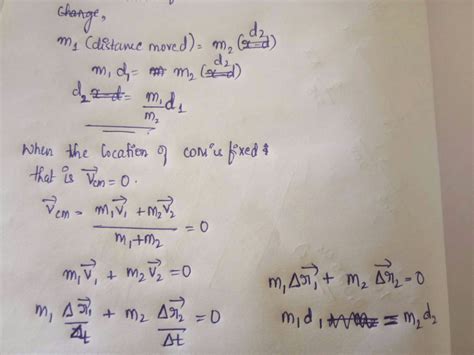 Change,
m₁ (distance moved) = m₂ (x-d) d₂
m₁ d₁ = m₂ (x-d) d₂
d₂ x-d = m₁/m₂ d₁
When the location of com is fixed &
that is v⃗cm = 0.
v⃗cm = (m₁v⃗₁ + m₂v⃗₂)/(m₁+m₂) = 0
m₁v⃗₁ + m₂v⃗₂ = 0
m₁ Δr⃗₁/Δt + m₂ Δr⃗₂/Δt = 0
m₁Δr⃗₁ + m₂ Δr⃗₂ = 0
m₁d₁ = m₂d₂